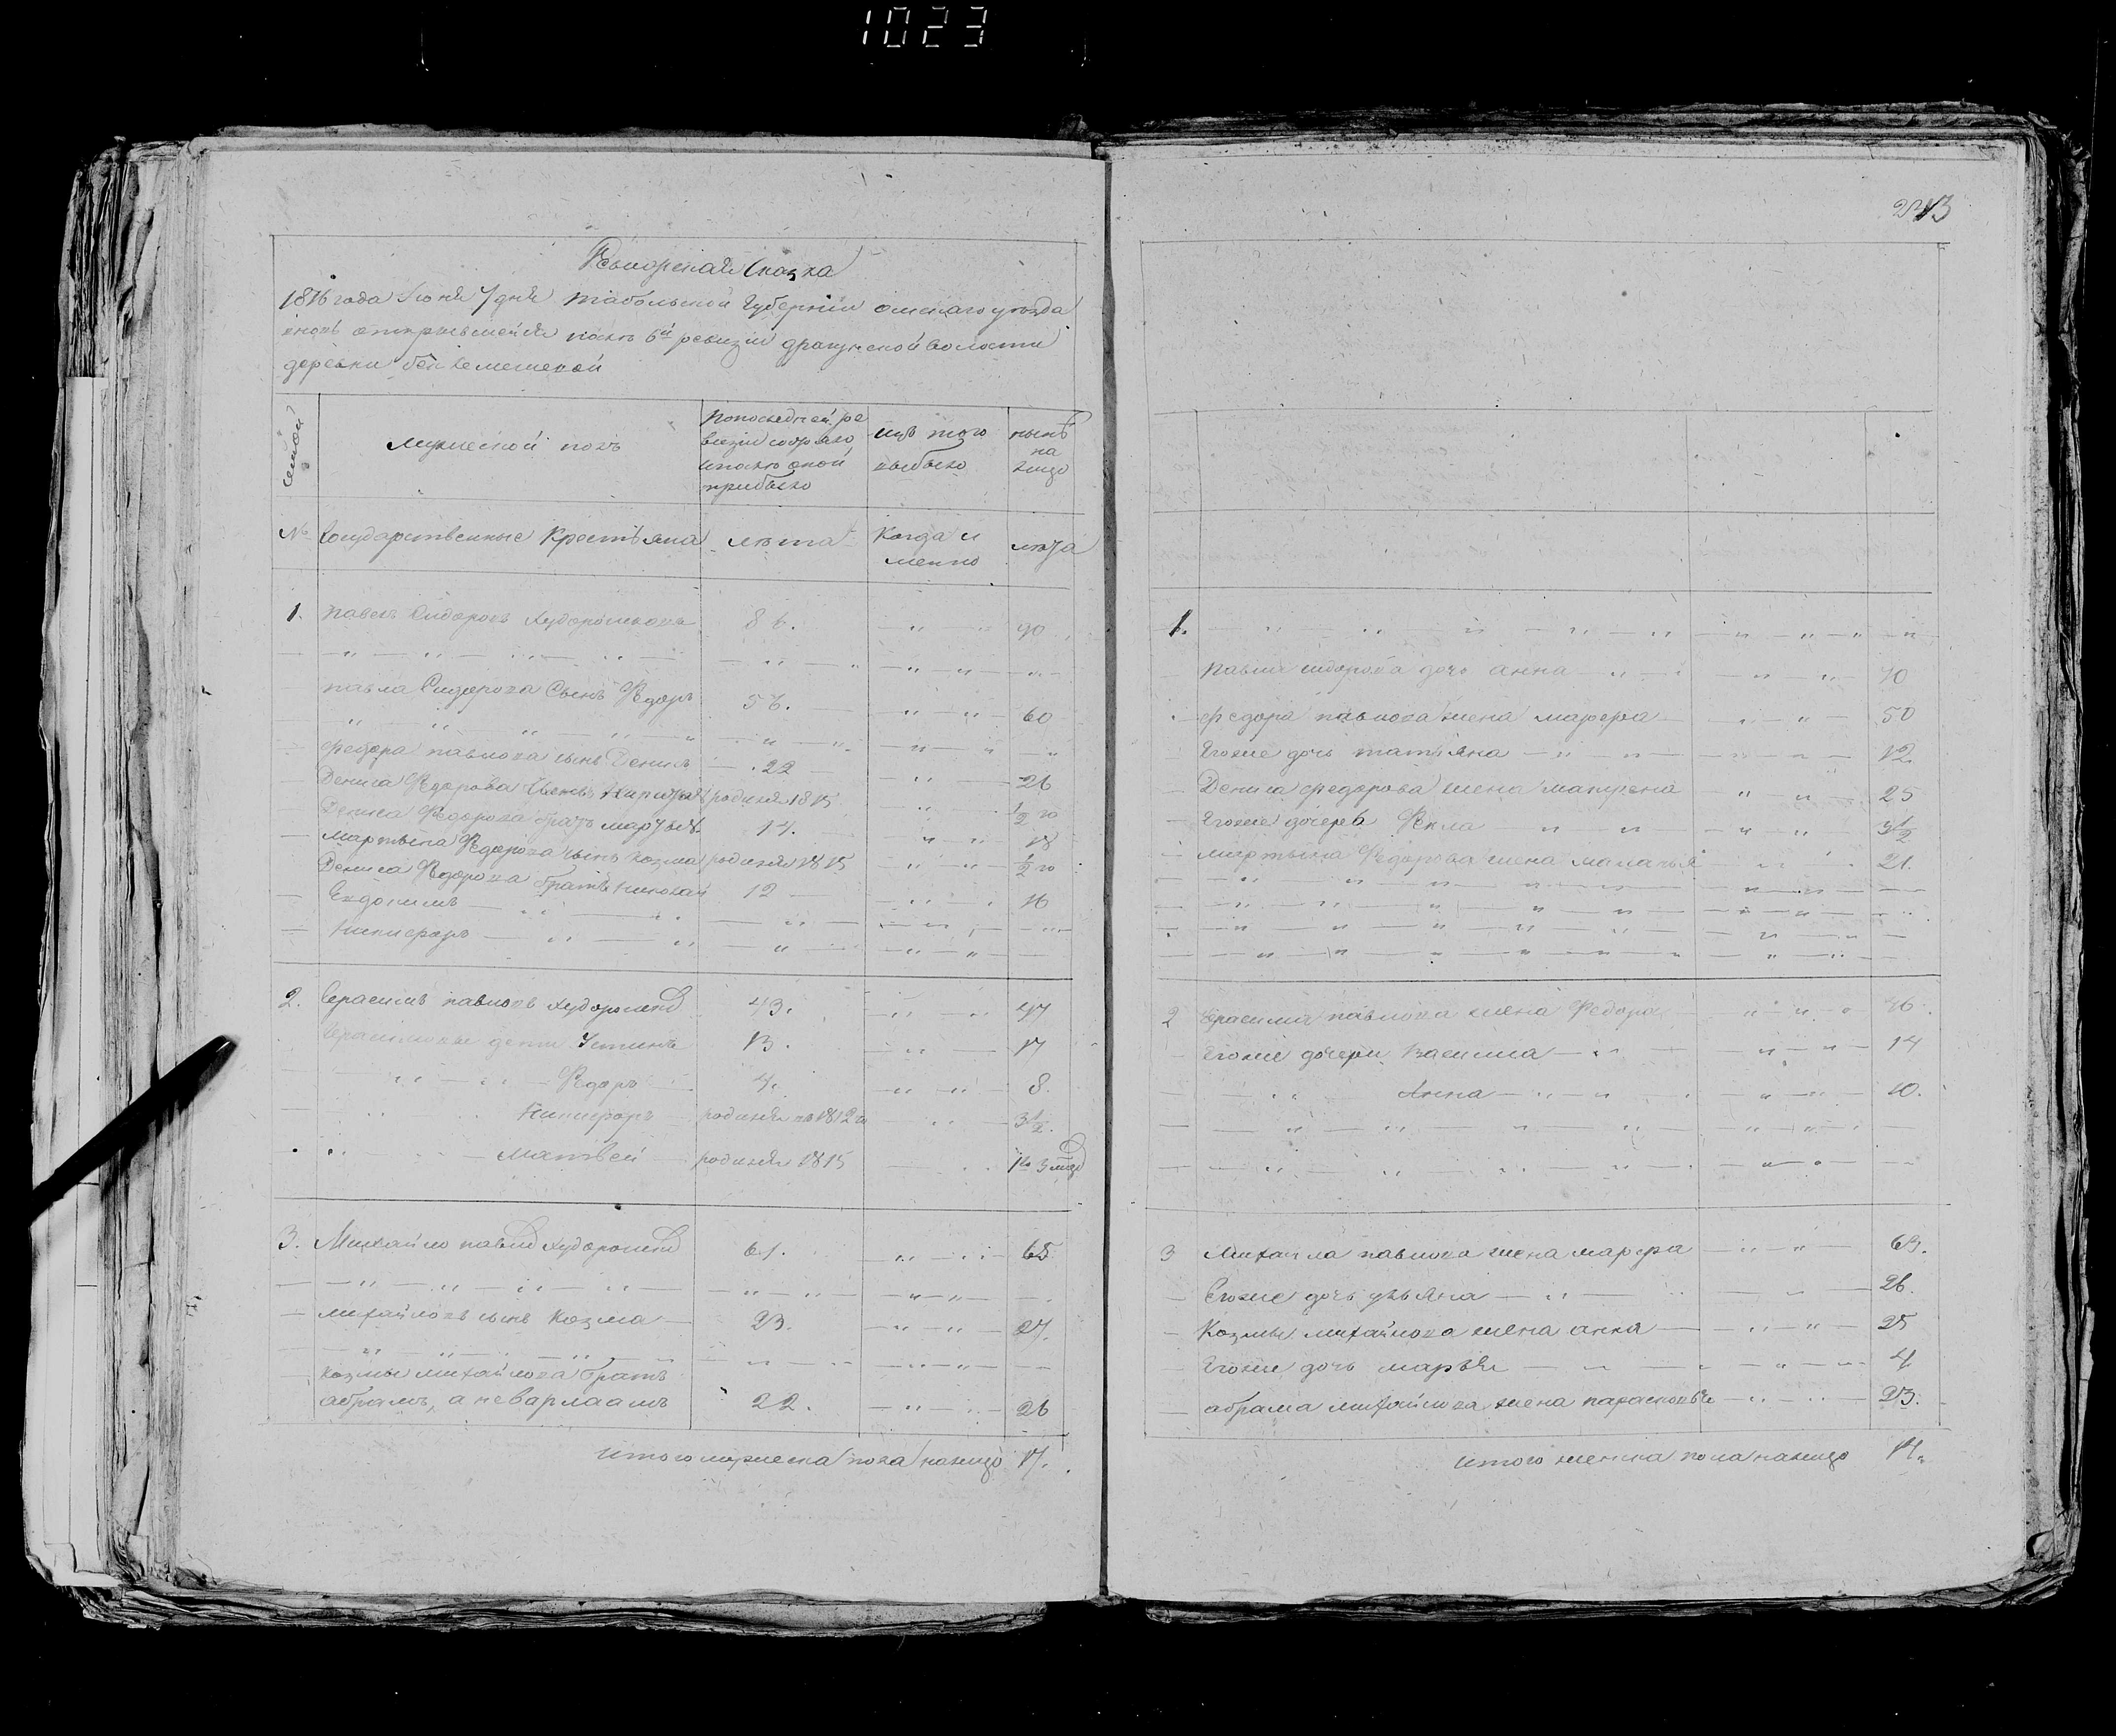 1023
213
Ревизская Сказка
1816 года Июня 7 дня Табольской Губернии омскаго уезда
вновь открывшейся после 6й ревизии драгунской волости
деревни
семей
мужеской пол
Попоследней ре
визии состояло
ипосле оной
прибыло
изъ того
выбыло
ныне
на
лицо
№ Государственные Крестьяна лета Когда и
менно
лета
1. Павелъ Сидоровъ 86. 90
павла Сидорова Сынъ Федоръ 56. 60
Федора павлова сынъ Денисъ 22 26
Дениса Федорова Сынъ родился 1815 ½ го
Дениса Федорова братъ мартынъ 14. 18
мартына Федорова сынъ козма родился 1815 ½ го
Дениса Федорова братъ николай 12 16
Евдокимъ
Никифоръ
2. Герасимъ павловъ 43. 47
Герасимовы дети Устинъ 13. 17
Федоръ 4. 8.
Никифоръ родился въ 1812 го 3½.
Матвей родился 1815
3. Михайло павлов 61. 65
михайловъ сынъ Козма 23. 27.
козмы михайлова братъ
абрамъ, а неварлаамъ 22. 26
итого мужеска пола налицо 17.
1.
павла сидорова дочь анна 40
федора павлова жена марфа 50
Егоже дочь татьяна 12.
Дениса федорова жена матрена 25
Егоже дочерь Фекла 3½
мартына Федорова жена маланья 21.
2 Герасима павлова жена Федора 46.
Егоже дочери Васили­са 14
Анна 10.
3 Михаила павлова жена марфа 63.
Егоже дочь ульяна 26.
Козмы михайлова жена анна 25
Егоже дочь марья 4
абрама михайлова жена парасковья 23.
итого женска пола налицо 14.